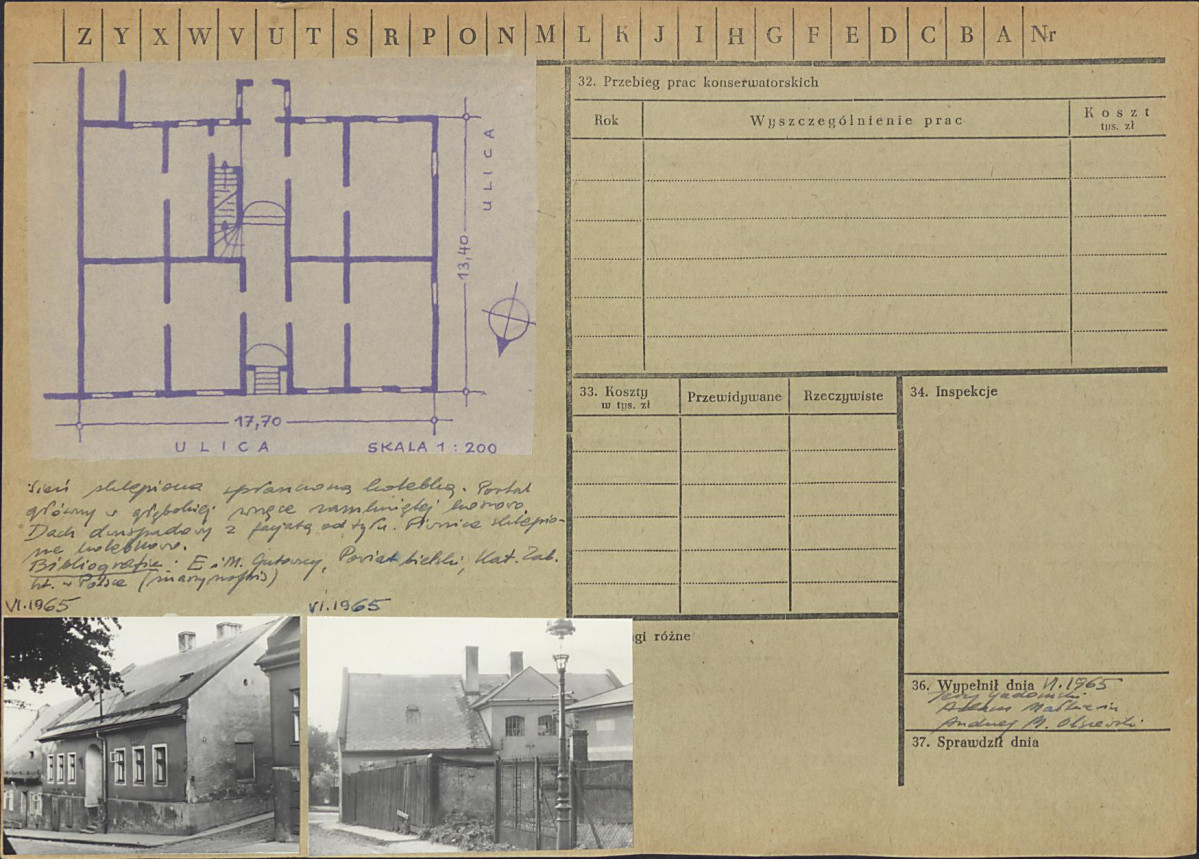 Z Y X W V U T S R P O N M L K J I H G F E D C B A Nr
ULICA
13,40
17,70
ULICA SKALA 1:200
Sień sklepiona spłaszczoną kolebką. Portal
główny w głębokiej wnęce zamkniętej konchowo.
Dach dwuspadowy z facjatą od tyłu. Piwnice sklepio-
ne kolebkowo.
Bibliografia: E i M. Gutowscy, Powiat bielski, Kat. Zab.
Szt. w Polsce (maszynopis)
VI.1965 VI.1965
32. Przebieg prac konserwatorskich
Rok Wyszczególnienie prac Koszt
tys. zł
33. Koszty Przewidywane Rzeczywiste
w tys. zł
34. Inspekcje
gi różne
36. Wypełnił dnia VI.1965
Jerzy Gadomski
Adam Małkiewicz
Andrzej M. Olszewski
37. Sprawdził dnia